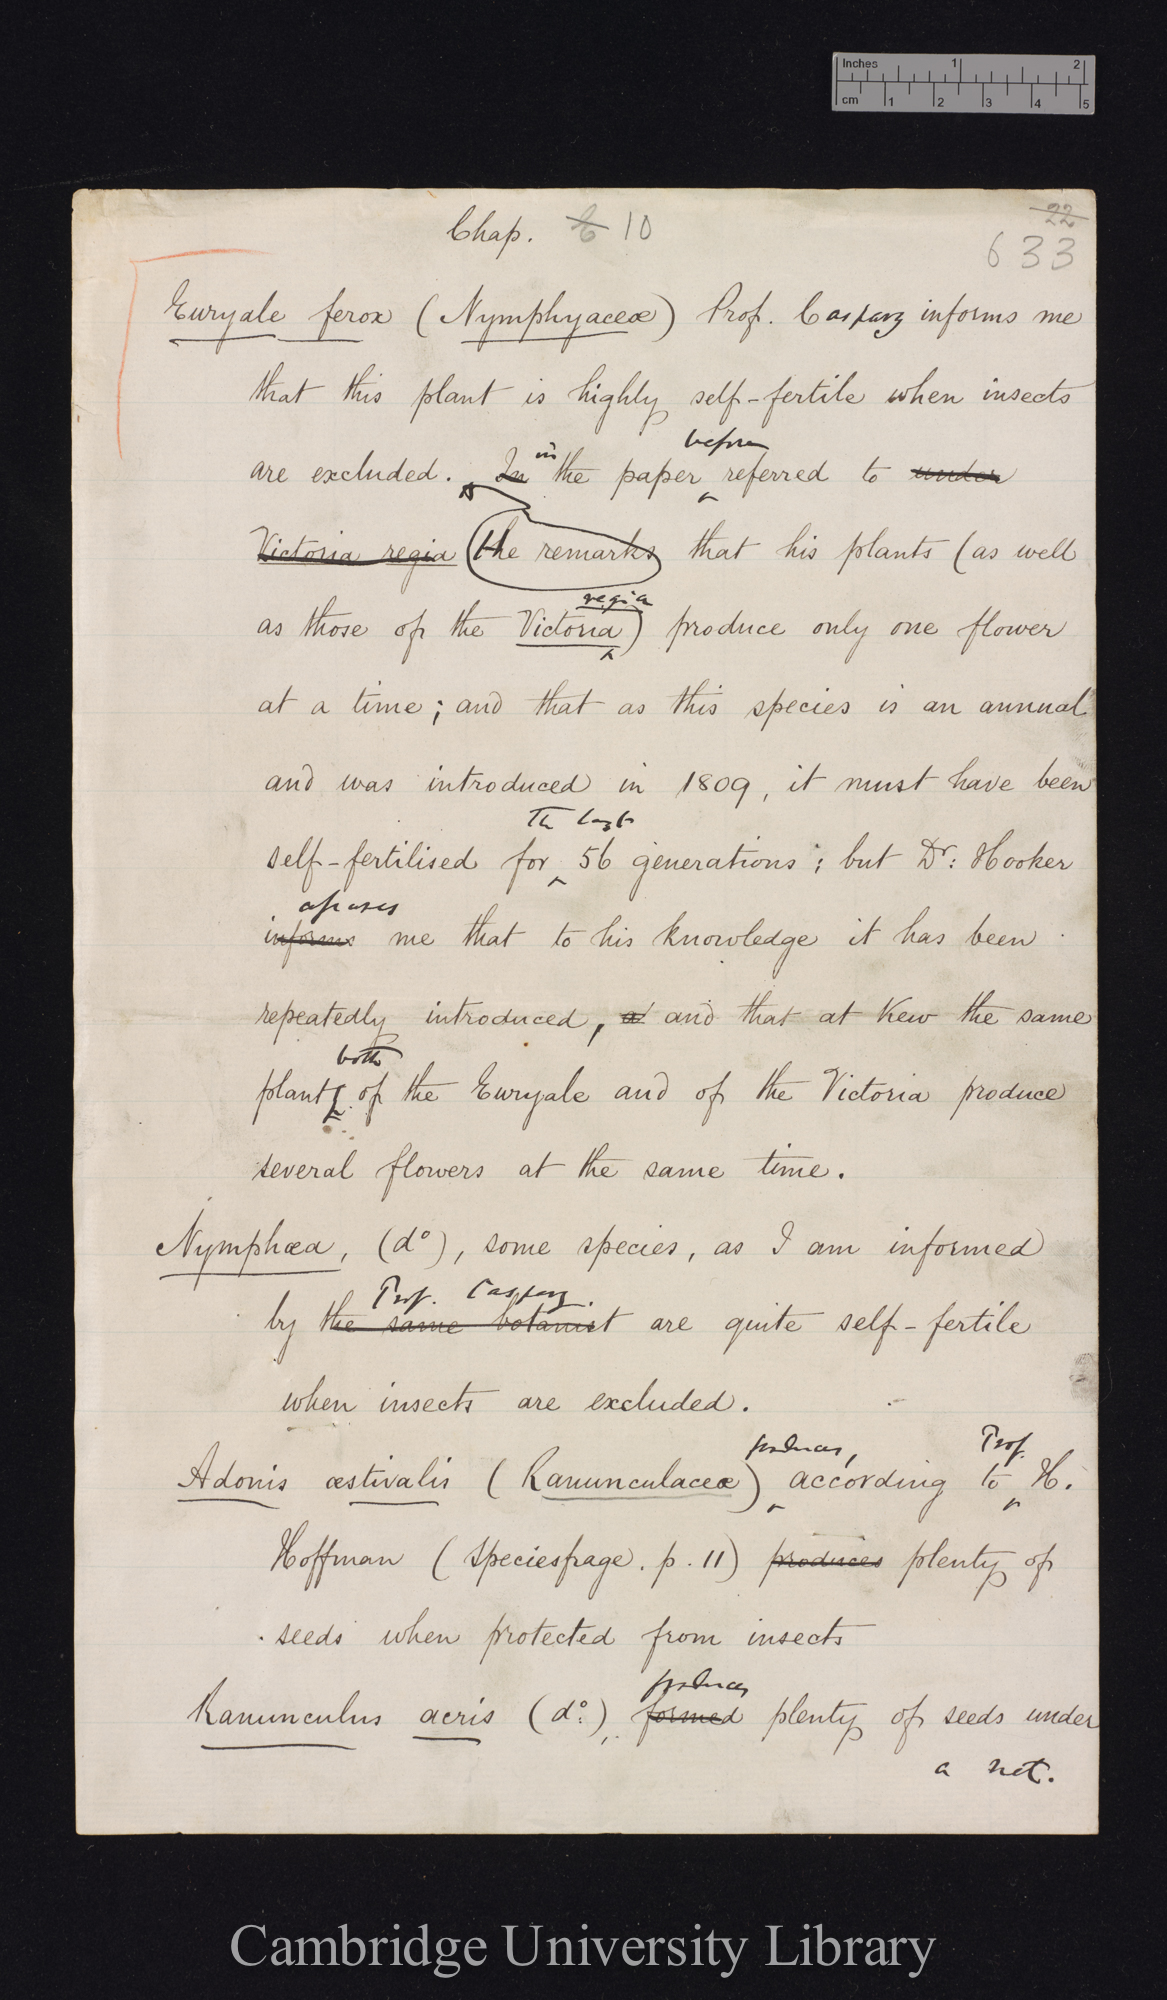 Inches 1 2
cm 1 2 3 4 5
Chap. 6 10
22
633
Euryale ferox (Nymphyaceæ) Prof. Caspary informs me
that this plant is highly self-fertile when insects
in before
are excluded. In the paper referred to under
Victoria regia (the remarks that his plants (as well
regia
as those of the Victoria) produce only one flower
at a time; and that as this species is an annual
and was introduced in 1809, it must have been
the last
self-fertilised for 56 generations; but Dr: Hooker
assures
informs me that to his knowledge it has been
repeatedly introduced, a and that at Kew the same
both
plant of the Euryale and of the Victoria produce
several flowers at the same time.
Nymphæa, (do), some species, as I am informed
Prof. Caspary.
by the same botanist are quite self-fertile
when insects are excluded.
produces, Prof.
Adonis æstivalis (Ranunculaceæ) according to H.
Hoffman (Speciesfrage. p. 11) produces plenty of
seeds when protected from insects
produces
Ranunculus acris (do:), formed plenty of seeds under
a net.
Cambridge University Library